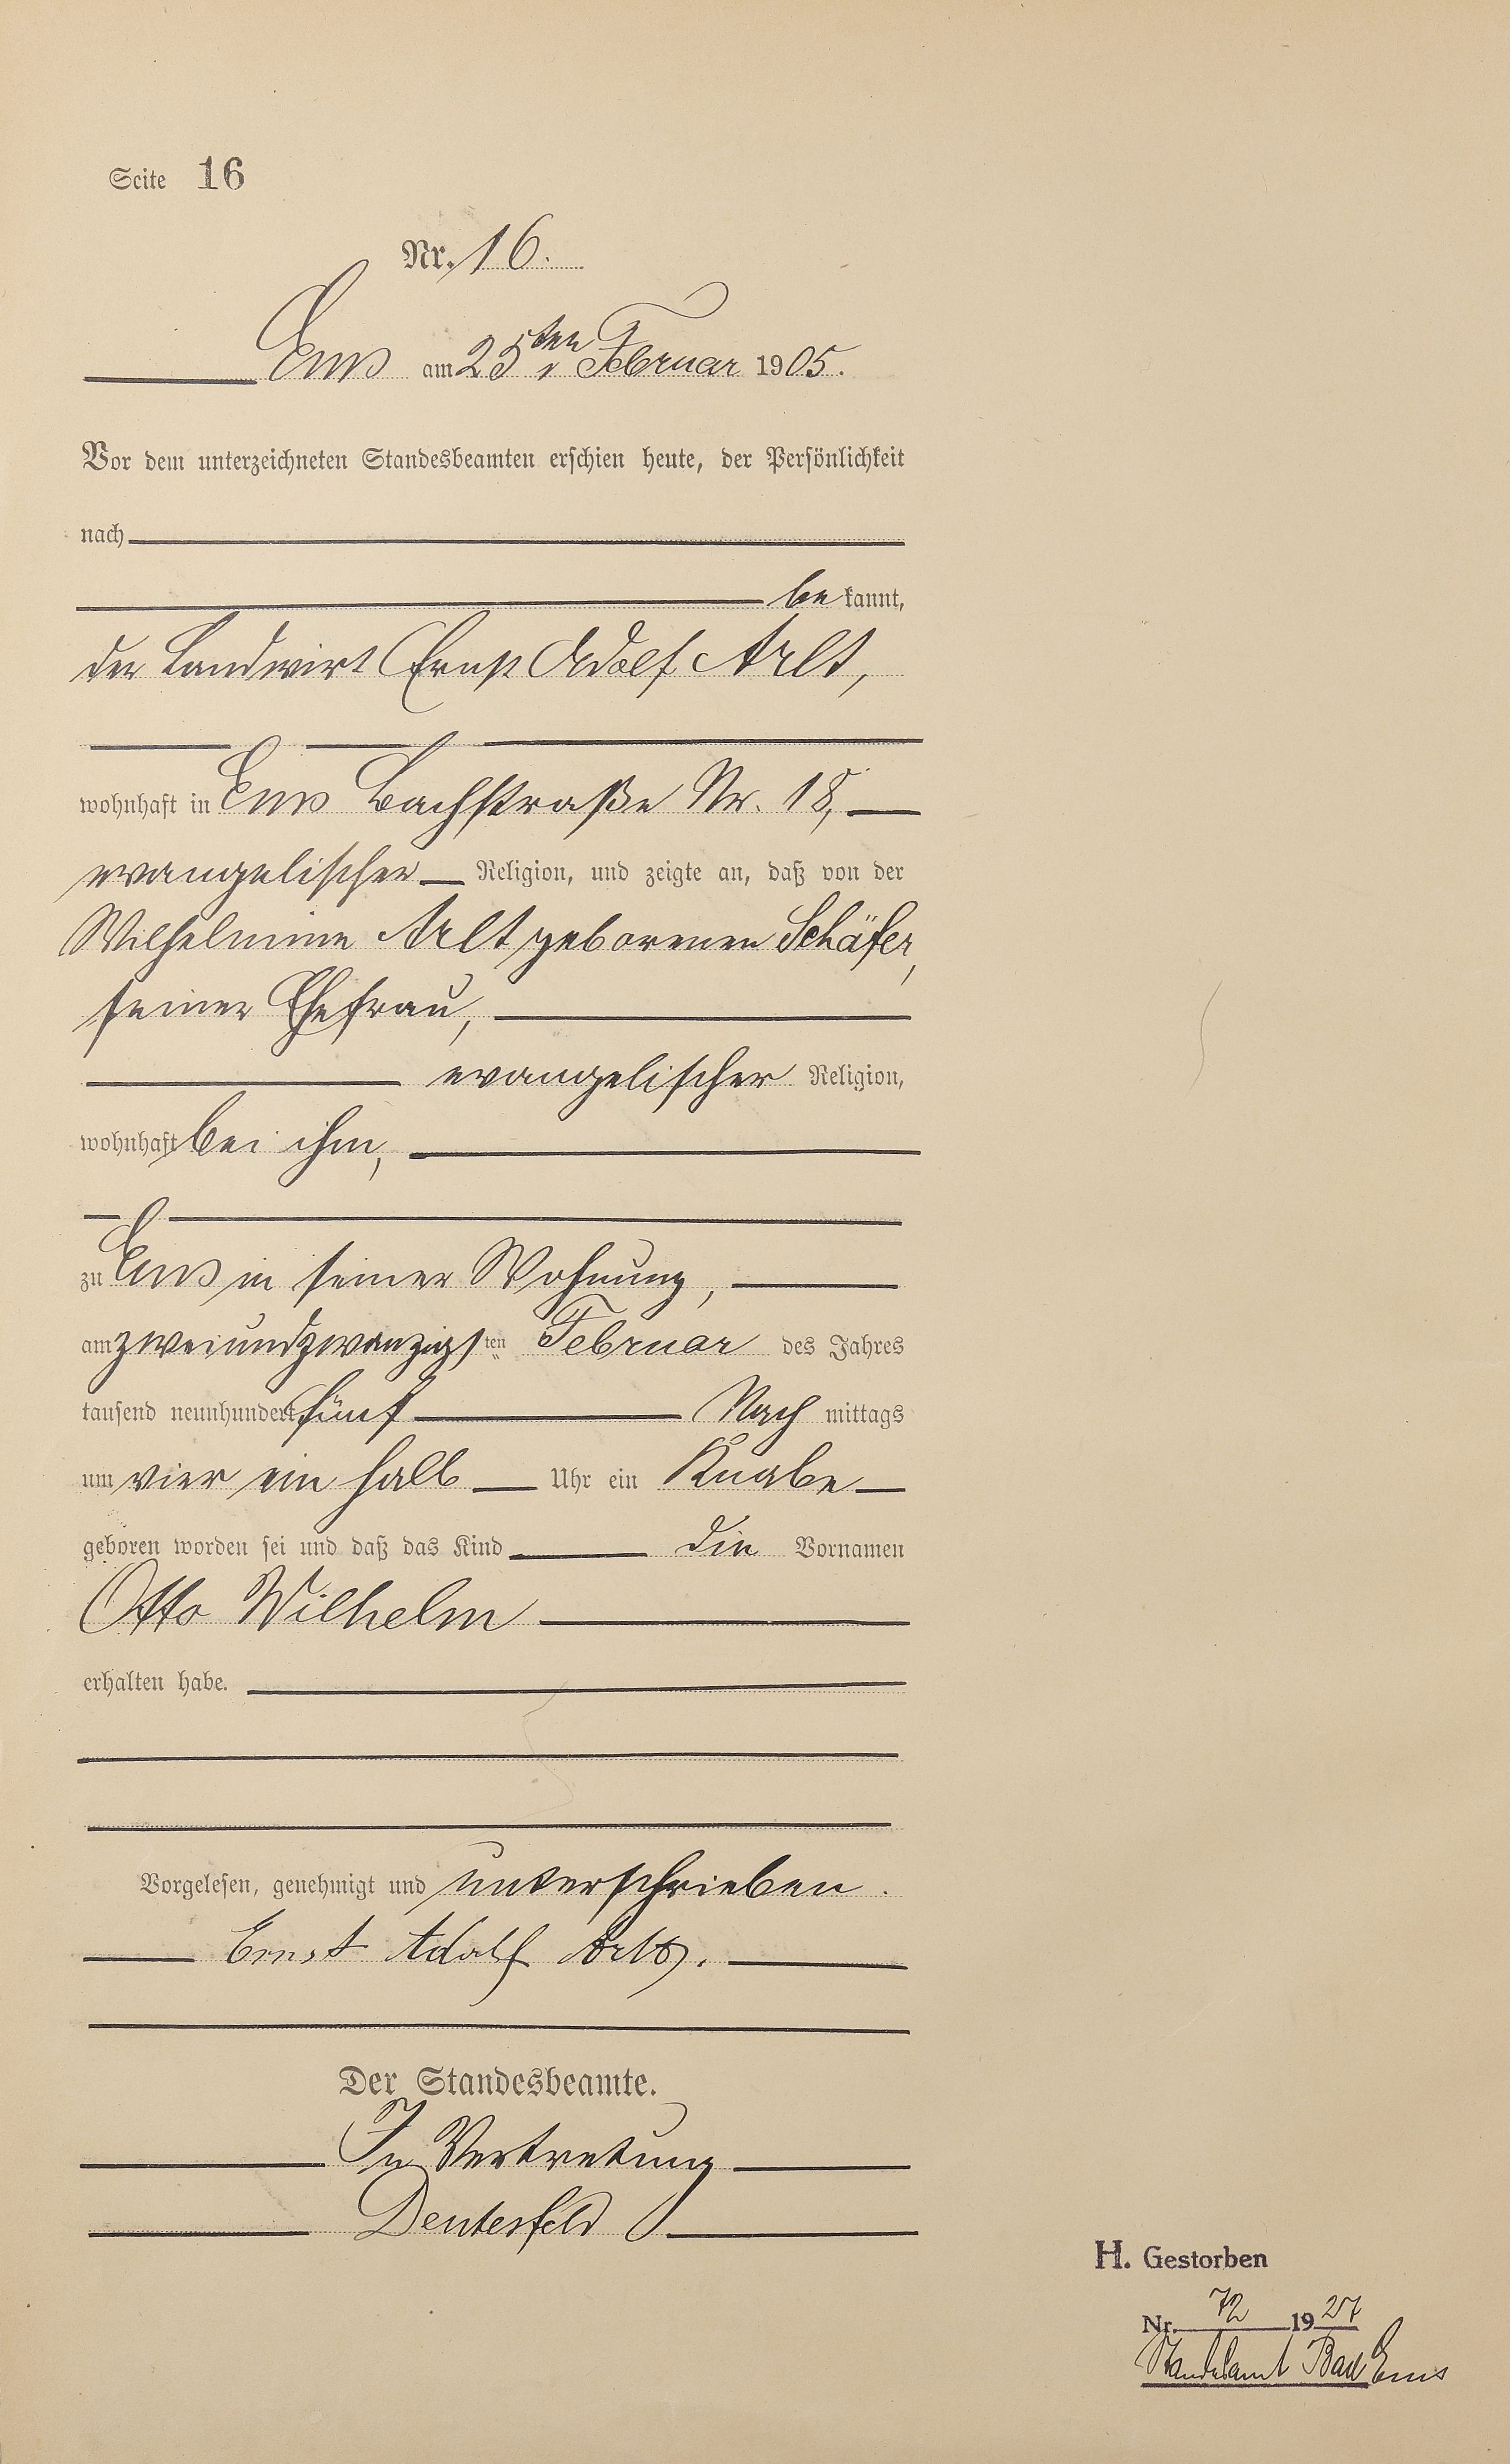 Seite 16
Nr. 16.
Ems am 25ten Februar 1905.
Vor dem unterzeichneten Standesbeamten erschien heute, der Persönlichkeit
nach
bekannt,
der Landwirt Ernst Adolf Arlt,
wohnhaft in Ems Bachstraße Nr. 18,
evangelischer Religion, und zeigte an, daß von der
Wilhelmine Arlt geborenen Schäfer,
seiner Ehefrau,
evangelischer Religion,
wohnhaft bei ihm,
zu Ems in seiner Wohnung,
am zweiundzwanzigsten Februar des Jahres
tausend neunhundert fünf Nachmittags
um vier ein halb Uhr ein Knabe
geboren worden sei und daß das Kind die Vornamen
Otto Wilhelm
erhalten habe.
Vorgelesen, genehmigt und unterschrieben.
Ernst Adolf Arlt.
Der Standesbeamte.
In Vertretung
Deutesfeld
H. Gestorben
Nr. 72 1927
Standesamt Bad Ems